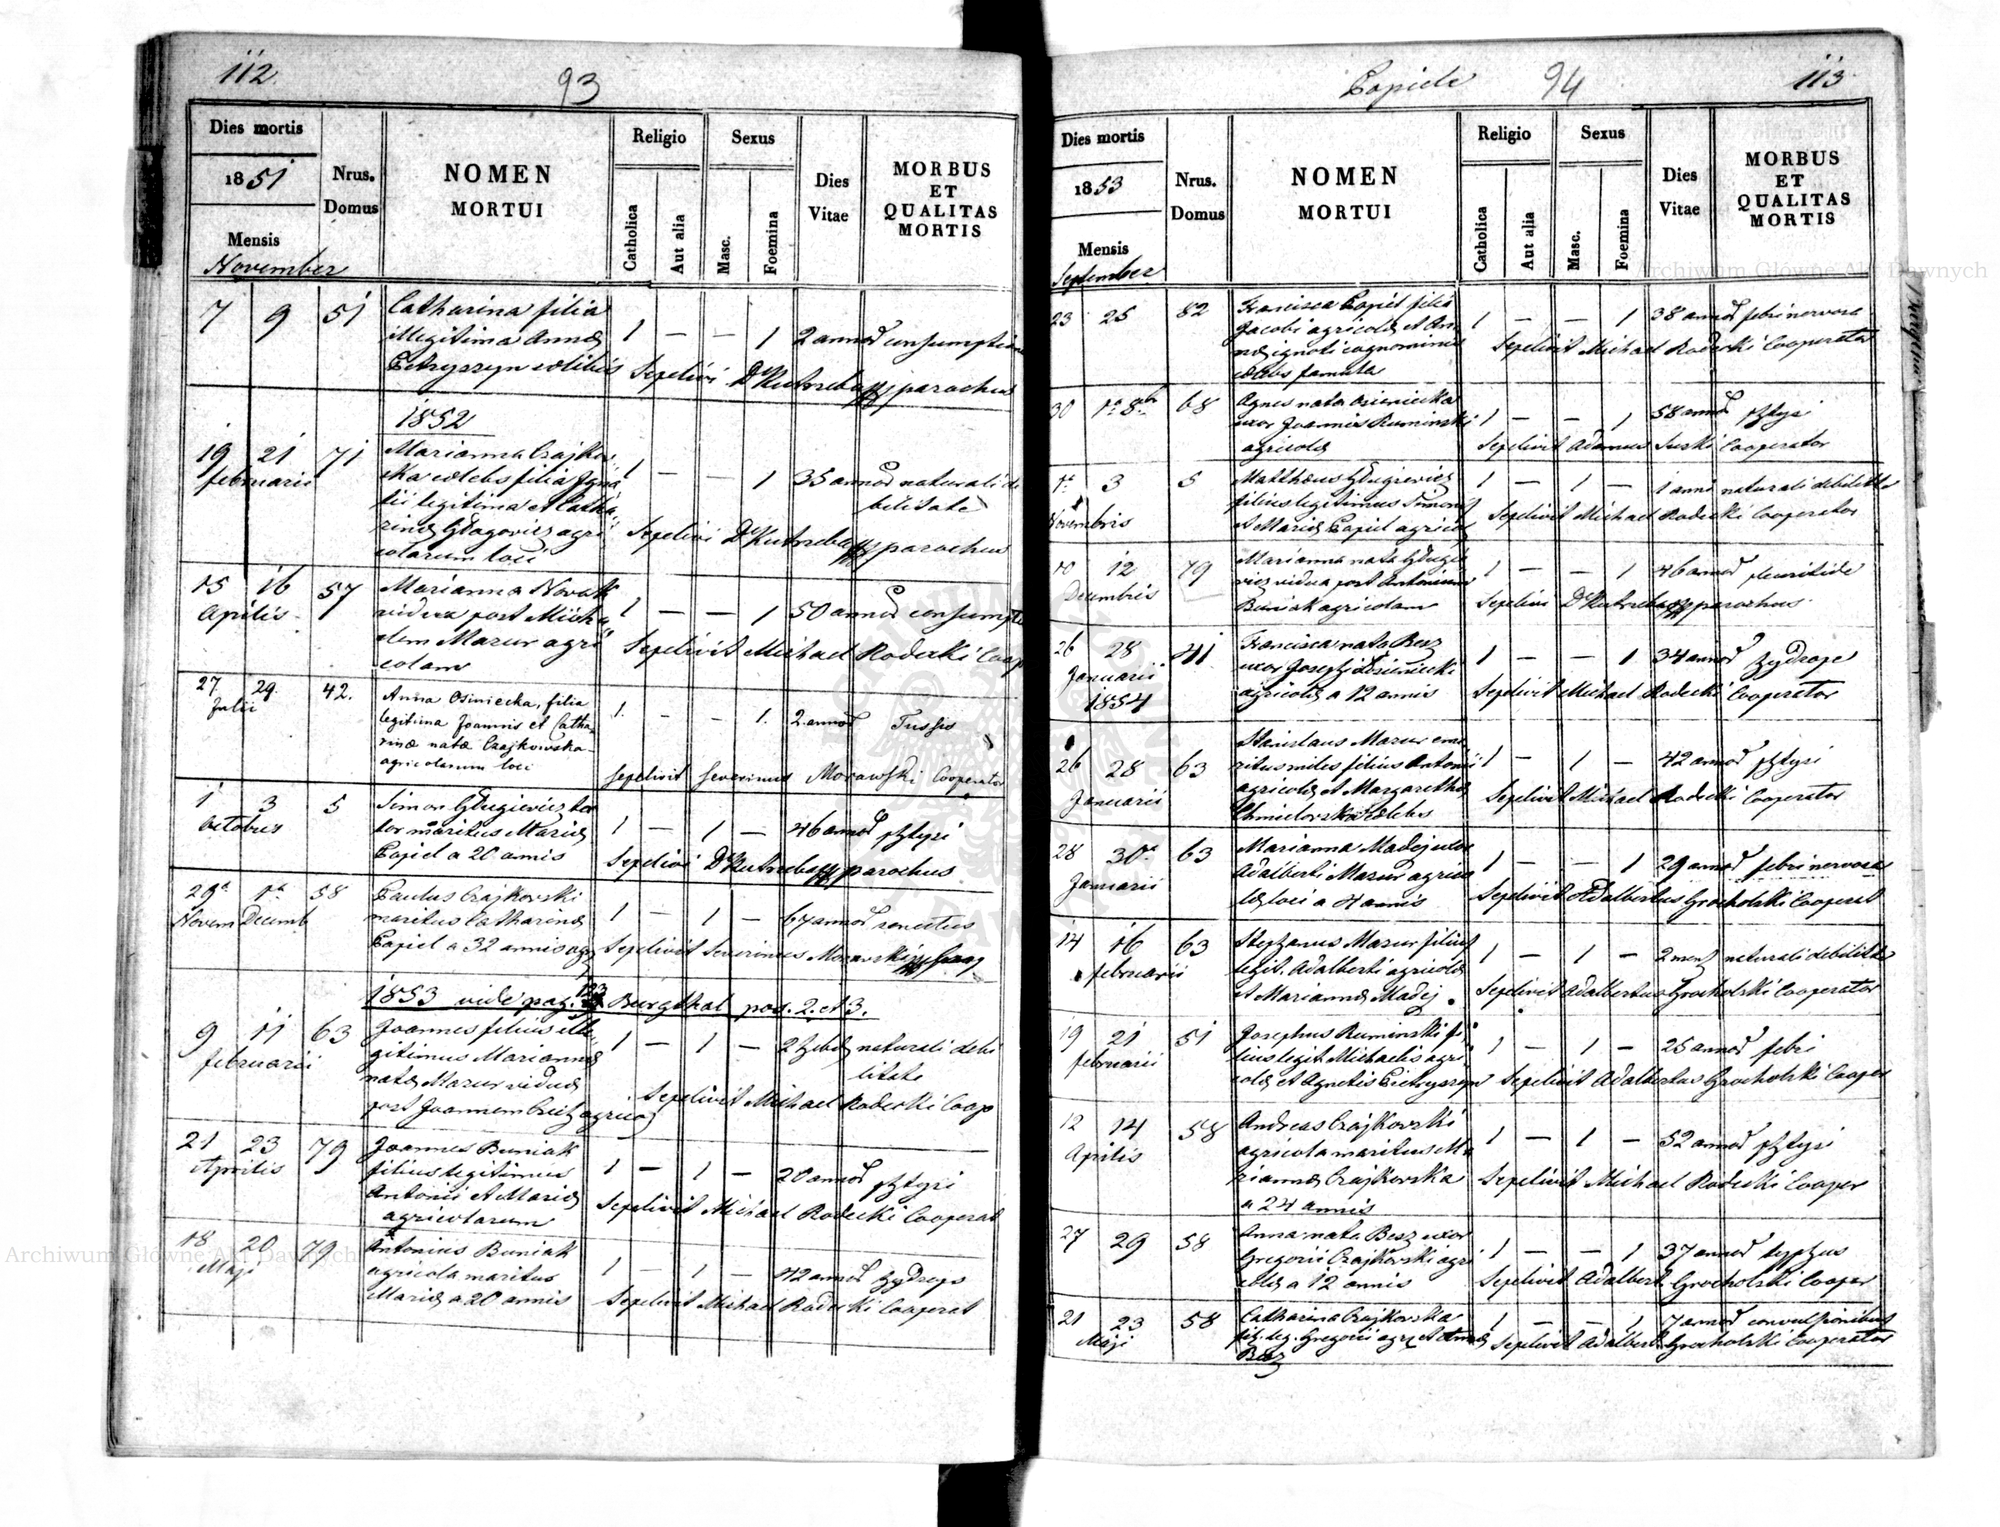 112.
93
Dies mortis
1851
Mensis
November
Nrus.
Domus
NOMEN
MORTUI
Religio
Catholica
Aut alia
Sexus
Masc.
Foemina
Dies
Vitae
MORBUS
ET
QUALITAS
MORTIS
7 9 51 Catharina filia
illegitima Annæ
Pietryszyn cælibis
1 — — 1 2 annor consumptione
Sepelivi Dr Kutrzeba parochus
1852
19 21 71
februarii
Marianna Czajkow
ska cælebs filia Igna
tii legitima et Catha
rinæ Głagovicz agri
colarum loci
1 — — 1 35 annor naturali de
bilitate
Sepelivi Dr Kutrzeba parochus
15 16 57
Aprilis
Marianna Novak
vidua post Micha
elem Mazur agri
colam
1 — — 1 50 annor consumpt
Sepelivit Michael Radecki Coop
27 29. 42.
Julii
Anna Osiniecka, filia
legitima Joannis et Catha
rinæ natæ Czajkowska
agricolarum loci
1. — — 1. 2 annor Tussis
Sepelivit Severinus Morawski Cooperator
1 3 5
Octobris
Simon Gługiewicz
maritus Mariæ
Papiel a 20 annis
1 — 1 — 46 annor phtysi
Sepelivi Dr Kutrzeba parochus
29a 1a 58
Novem Decemb
Paulus Czajkovski
maritus Catharinæ
Papiel a 32 annis agr
1 — 1 — 67 annor senectus
Sepelivit Severinus Morawski Coop
1853 vide pag. 123 Burgthal pos. 2. et 3.
9 11 63
februarii
Joannes filius ille
gitimus Mariannæ
natæ Mazur viduæ
post Joannem agricol
1 — 1 — 2 hebd naturali debi
litate
Sepelivit Michael Radecki Coop
21 23 79
Aprilis
Joannes Buniak
filius legitimus
Antonii et Mariæ
agricolarum
1 — 1 — 20 annor phtysi
Sepelivit Michael Radecki Cooperat
18 20 79
Maji
Antonius Buniak
agricola maritus
Mariæ a 20 annis
1 — 1 — 42 annor hydrops
Sepelivit Michael Radecki Cooperat
94
113
Dies mortis
1853
Mensis
September
Nrus.
Domus
NOMEN
MORTUI
Religio
Catholica
Aut alia
Sexus
Masc.
Foemina
Dies
Vitae
MORBUS
ET
QUALITAS
MORTIS
23 25 82
Francisca Papiel filia
Jacobi agricolæ et An
næ ignoti cognominis
cælebs famula
1 — — 1 38 annor febri nervosa
Sepelivit Michael Radecki Cooperator
30 1a 8br 68
Agnes nata Osieniecka
uxor Joannis Ruminski
agricolæ
1 — — 1 58 annor phtysi
Sepelivit Adamus Suski Cooperator
1a 3 5
Novembris
Matthæus Gługiewicz
filius legitimus Simonis
et Mariæ Papiel agricol
1 — 1 — 1 anni naturali debilitate
Sepelivit Michael Radecki Cooperator
10 12 79
Decembris
Marianna nata Gługie
vicz vidua post Antonium
Buniak agricolam
1 — — 1 46 annor pleuritide
Sepelivi Dr Kutrzeba parochus
26 28 41
Januarii
1854
Francisca nata Besz
uxor Josephi Osieniecki
agricolæ a 12 annis
1 — — 1 34 annor hydrope
Sepelivit Michael Radecki Cooperator
26 28 63
Januarii
Stanislaus Mazur eme
ritus miles filius Antonii
agricolæ et Margarethæ
Chmielovska cælebs
1 — 1 — 42 annor phtysi
Sepelivit Michael Radecki Cooperator
28 30a 63
Januarii
Marianna Madej uxor
Adalberti Mazur agrico
læ loci a 4 annis
1 — — 1 29 annor febri nervosa
Sepelivit Adalbertus Grocholski Cooperat
14 16 63
februarii
Stephanus Mazur filius
legit. Adalberti agricolæ
et Mariannæ Madej
1 — 1 — 2 mens naturali debilitate
Sepelivit Adalbertus Grocholski Cooperator
19 21 51
februarii
Josephus Ruminski fi
lius legit. Michaelis agri
colæ et Agnetis Pietryszyn
1 — 1 — 25 annor febri
Sepelivit Adalbertus Grocholski Cooper
12 14 58
Aprilis
Andreas Czajkovski
agricola maritus Ma
riannæ Czajkovska
a 24 annis
1 — 1 — 52 annor phtysi
Sepelivit Michael Radecki Cooper
27 29 58
Anna nata Besz uxor
Gregorii Czajkovski agri
colæ a 12 annis
1 — — 1 37 annor typhus
Sepelivit Adalbert Grocholski Cooper
21 23 58
Maji
Catharina Czajkovska
fil. leg. Gregorii agr et Annæ
Besz
1 — — 1 7 annor convulsionibus
Sepelivit Adalbert Grocholski Cooperator
Archiwum Główne Akt Dawnych
Archiwum Główne Akt Dawnych